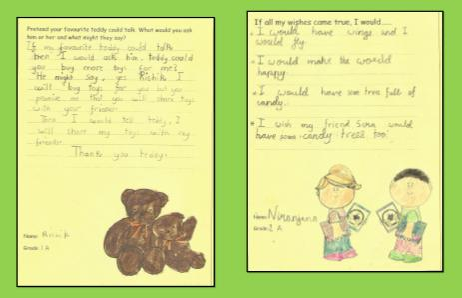 Pretend your favourite teddy could talk. What would you ask
him or her and what might they say?
If my favourite teddy could talk
then I would ask him, teddy could
you buy more toys for me?
He might say, yes Rishik I
will buy toys for you but you
promise me that you will share toys
with your friends.
Then I would tell teddy, I
will share my toys with my
friends.
Thank you teddy.
Name: Rishik
Grade: 1 A
If all my wishes came true, I would.....
I would have wings and I
would fly.
I would make the world
happy.
I would have some tree full of
candy.
I wish my friend would
have some candy trees too.
Name: Niranjana
Grade: 1 A